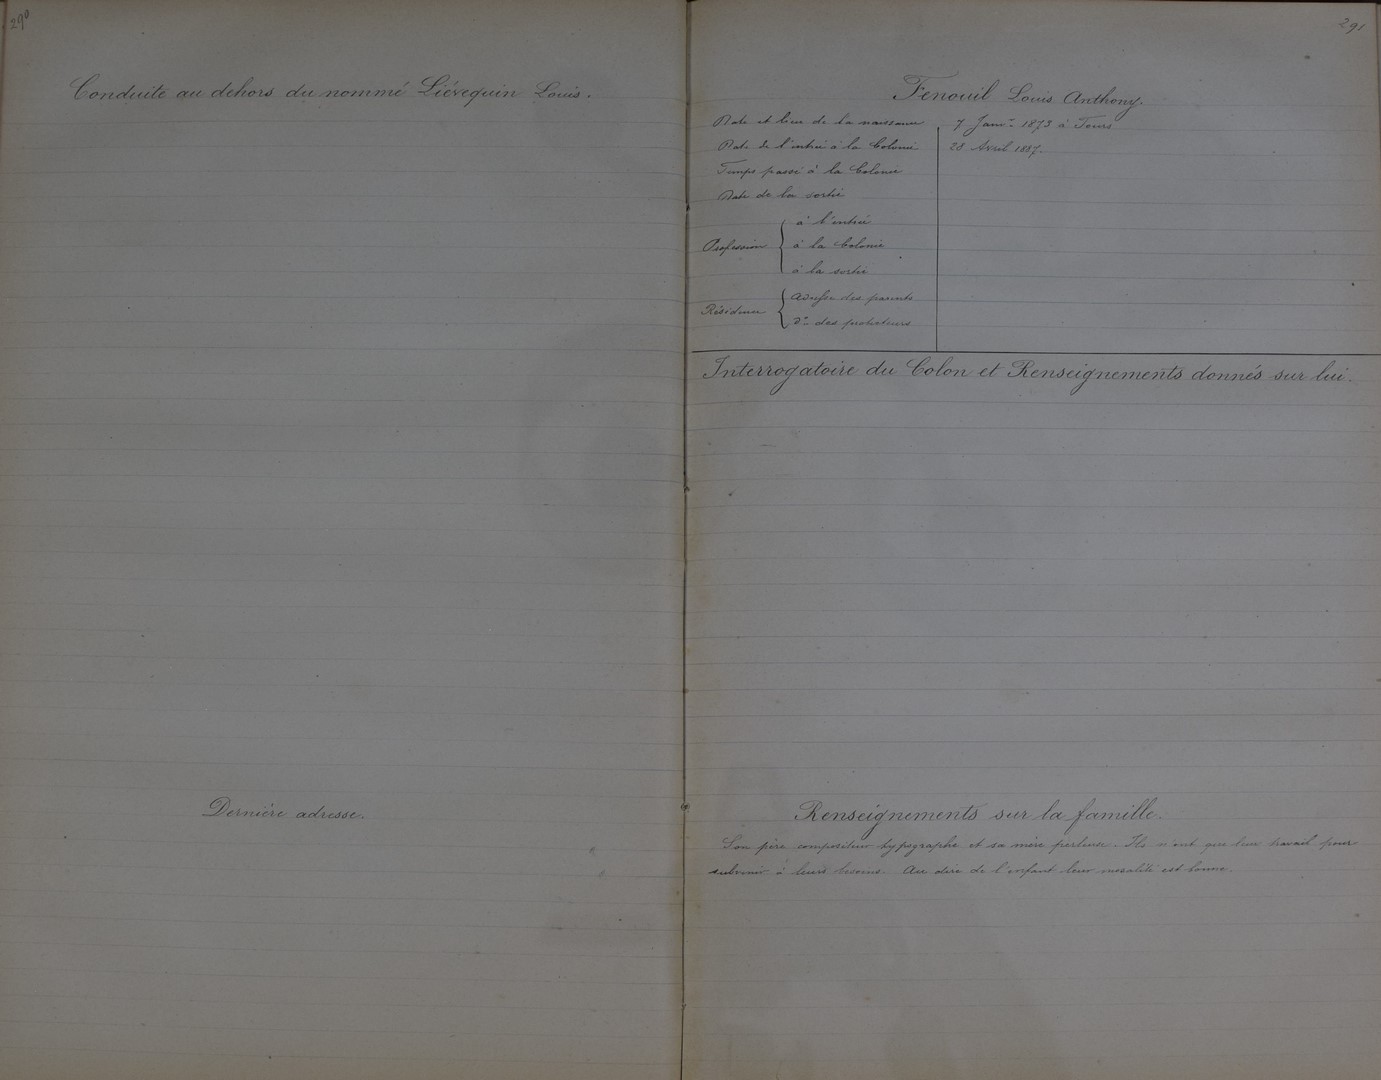 290
Conduite au dehors du nommé Liévequin Louis.
Dernière adresse.
291
Fenouil Louis Anthony.
Date et lieu de la naissance 7 Janv. 1873 à Tours
Date de l'entrée à la Colonie 28 Avril 1887.
Temps passé à la Colonie
Date de la sortie
Profession { à l'entrée
à la Colonie
à la sortie
Résidence { adresse des parents
do des protecteurs
Interrogatoire du Colon et Renseignements donnés sur lui.
Renseignements sur la famille.
Son père compositeur typographe et sa mère perleuse. Ils n'ont que leur travail pour
subvenir à leurs besoins. Au dire de l'enfant leur moralité est bonne.